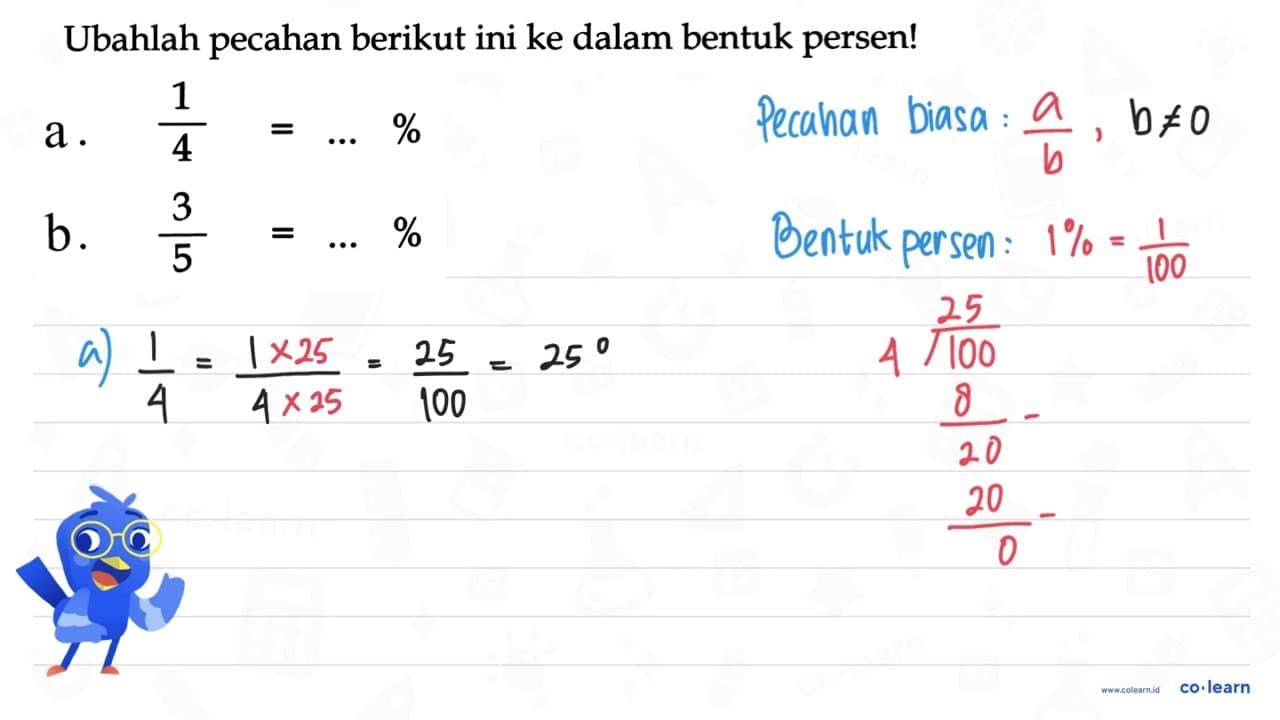 Ubahlah pecahan berikut ini ke dalam bentuk persen!
a. 1/4 = ... %
b. 3/5 = ... %
Pecahan biasa: a/b, b≠0
Bentuk persen: 1% = 1/100
a) 1/4 = 1 × 25 / 4 × 25 = 25/100 = 25 °
25
4 / 100
8 -
20
20 -
0
www.colearn.id co·learn